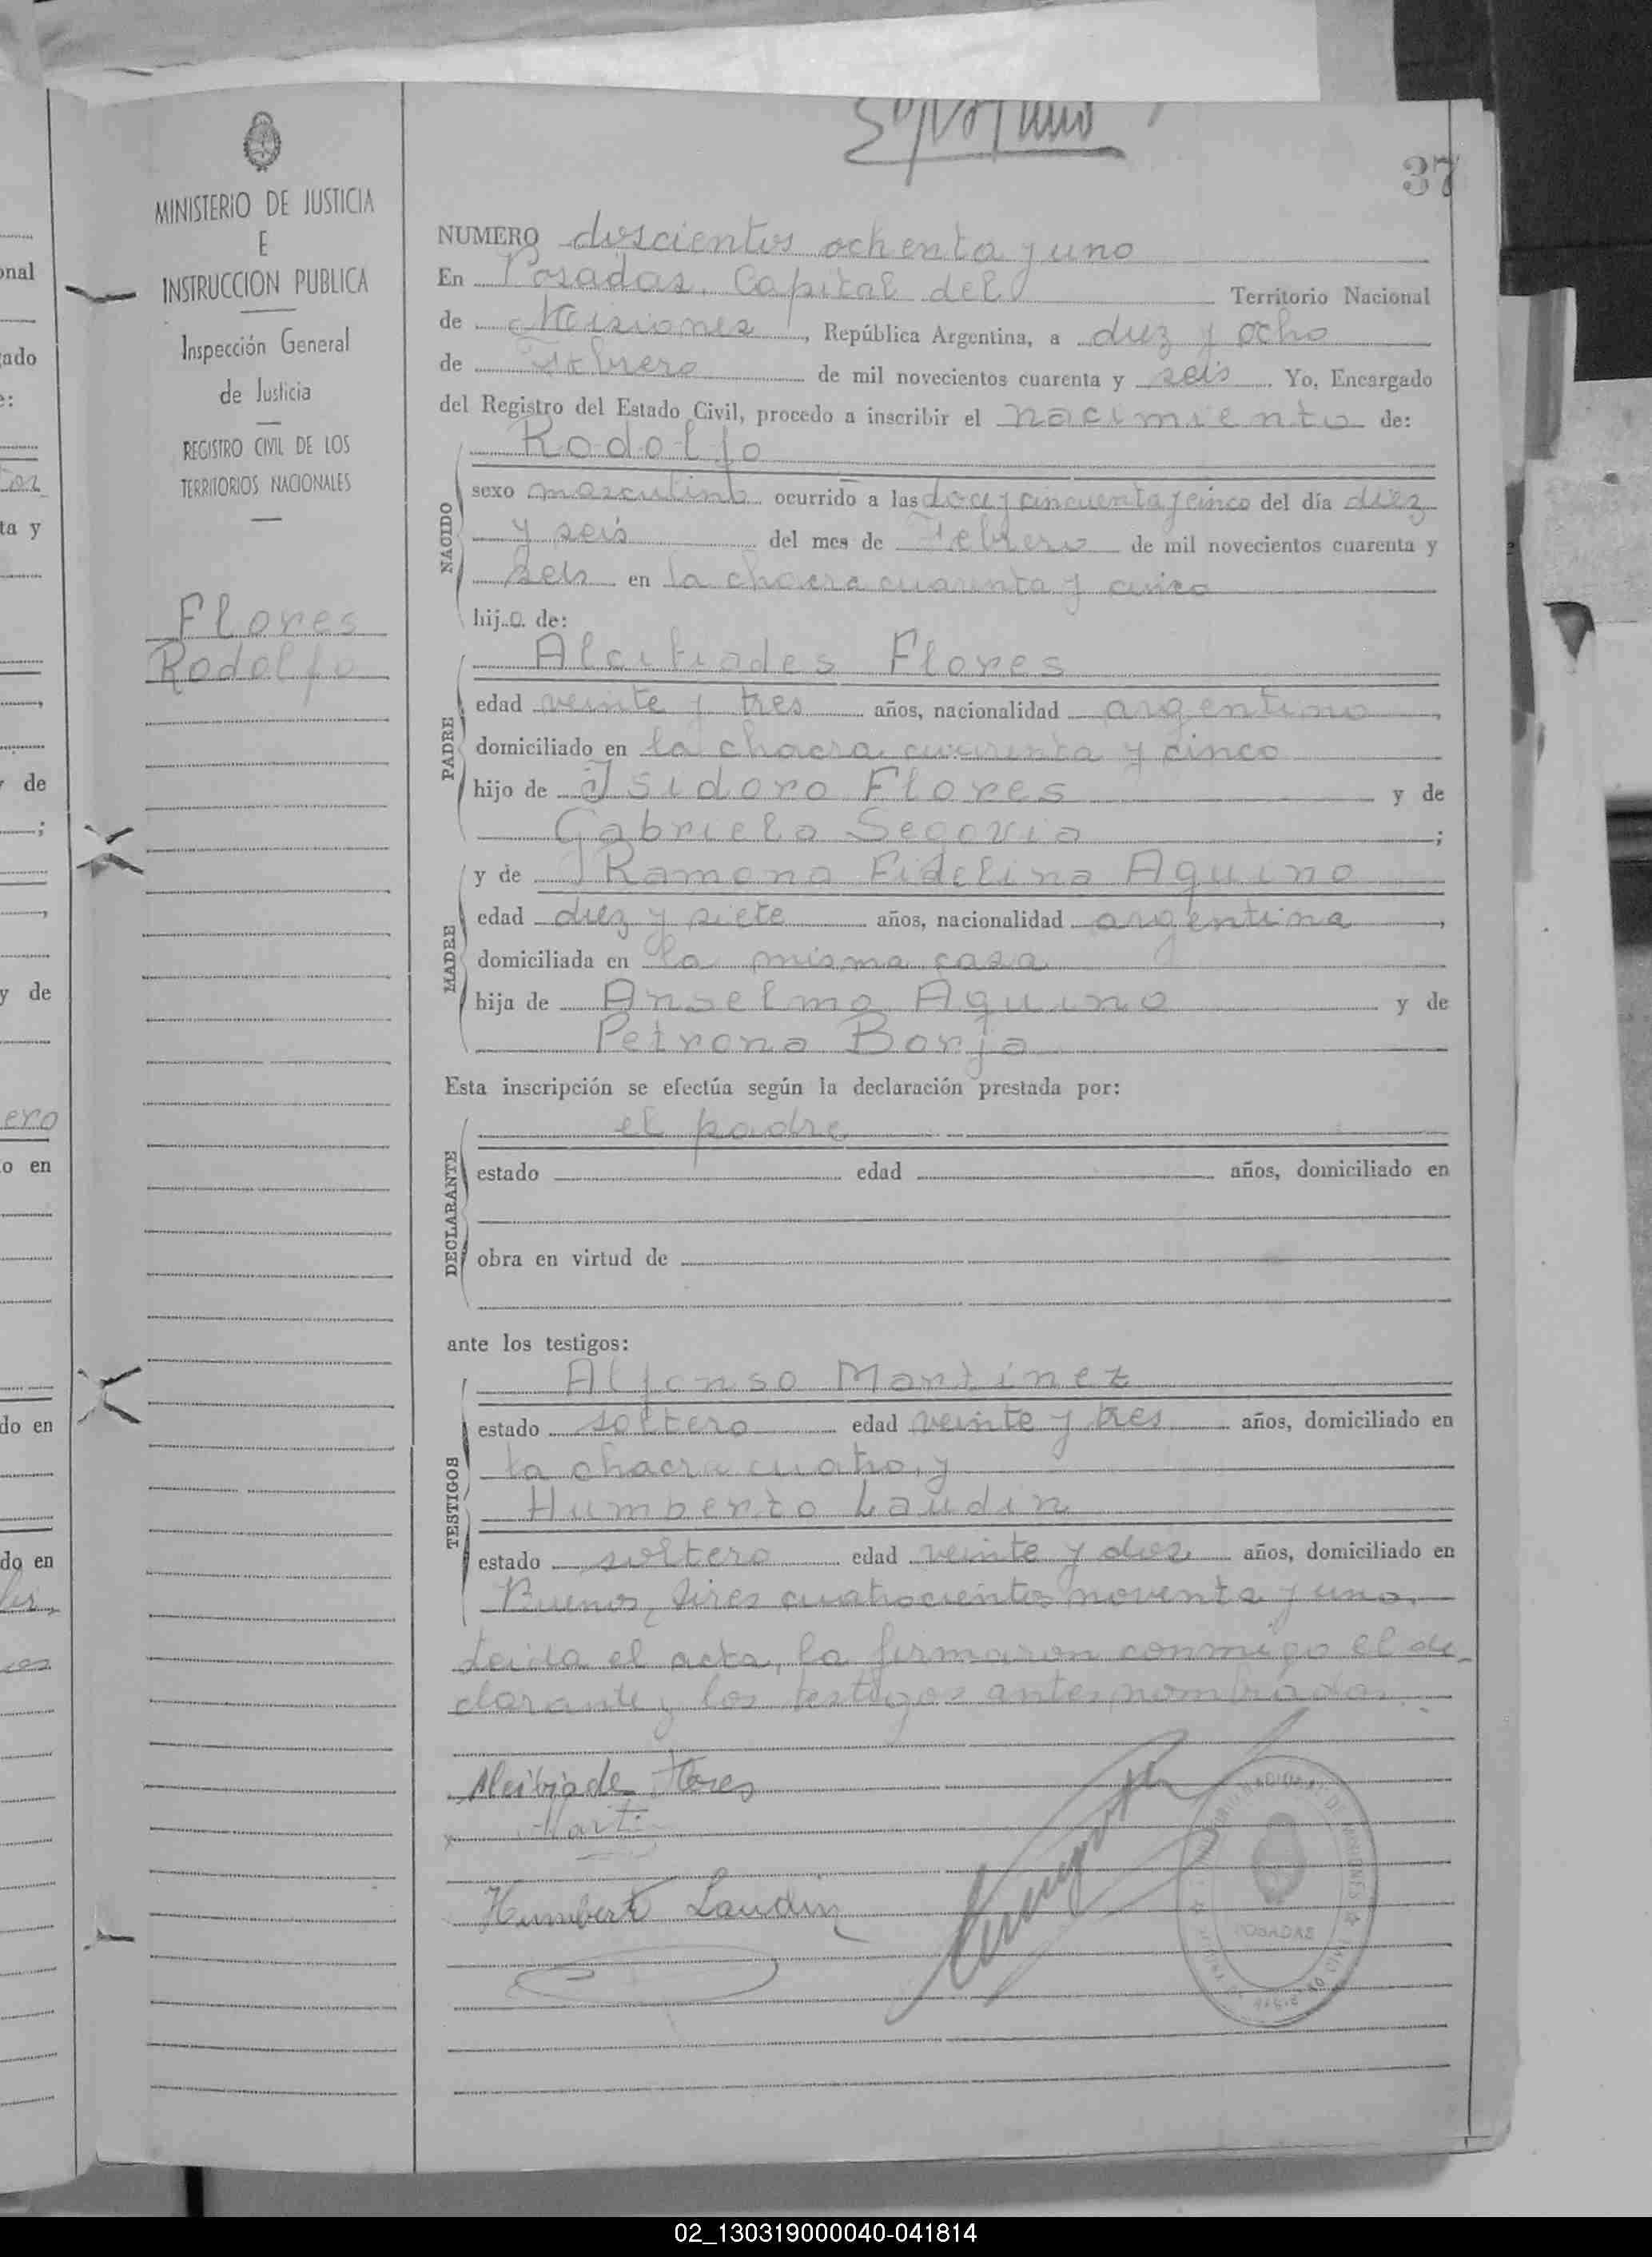 37
MINISTERIO DE JUSTICIA
E
INSTRUCCION PUBLICA
Inspección General
de Justicia
REGISTRO CIVIL DE LOS
TERRITORIOS NACIONALES
Flores
Rodolfo
NUMERO doscientos ochenta y uno
En Posadas, Capital del Territorio Nacional
de Misiones, República Argentina, a diez y ocho
de Febrero de mil novecientos cuarenta y seis. Yo, Encargado
del Registro del Estado Civil, procedo a inscribir el nacimiento de:
Rodolfo
NACIDO
sexo masculino ocurrido a las doce y cincuenta y cinco del día diez
y seis del mes de Febrero de mil novecientos cuarenta y
seis en la chacra cuarenta y cinco
hijo de:
Alcibiades Flores
PADRE
edad veinte y tres años, nacionalidad argentino,
domiciliado en la chacra cuarenta y cinco
hijo de Isidoro Flores y de
Gabriela Segovia;
y de Ramona Fidelina Aquino
MADRE
edad diez y siete años, nacionalidad argentina,
domiciliada en la misma casa
hija de Anselmo Aquino y de
Petrona Borja
Esta inscripción se efectúa según la declaración prestada por:
el padre
DECLARANTE
estado edad años, domiciliado en
obra en virtud de
ante los testigos:
Alfonso Martinez
TESTIGOS
estado soltero edad veinte y tres años, domiciliado en
la chacra cuatro, y
Humberto Laudin
estado soltero edad veinte y dos años, domiciliado en
Buenos Aires cuatrocientos noventa y uno.
Leida el acta, la firmaron conmigo el de-
clarante y los testigos antes nombrados.
Alcibiade Flores
Humberto Laudin
POSADAS
02_130319000040-041814